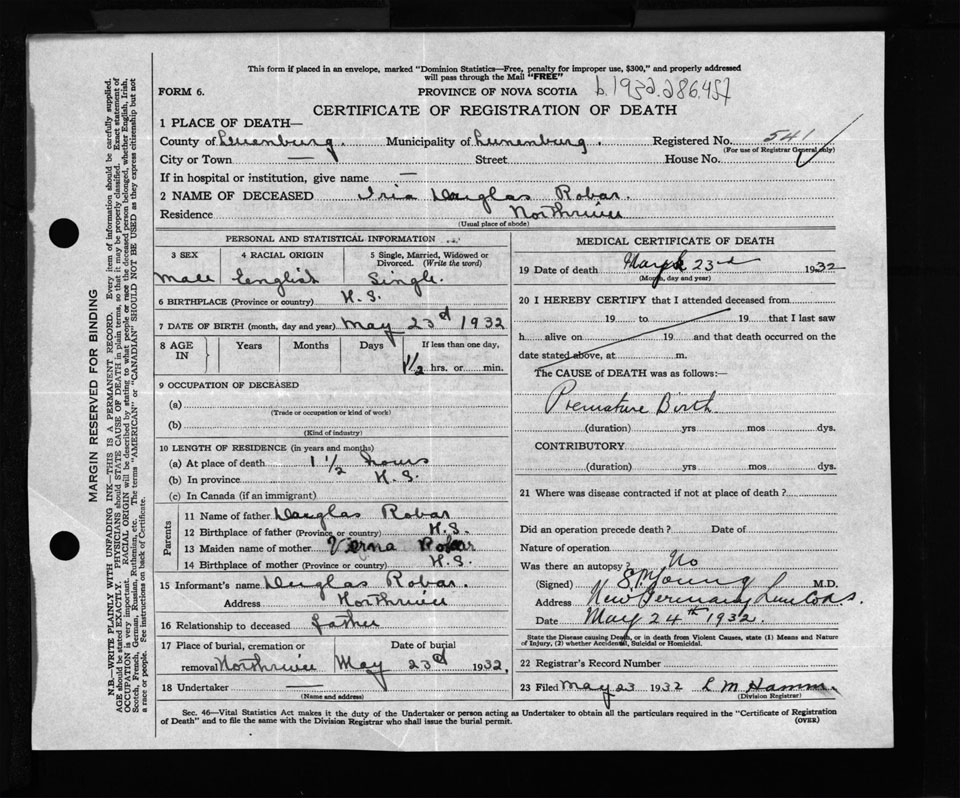 This form if placed in an envelope, marked "Dominion Statistics—Free, penalty for improper use, $300," and properly addressed
will pass through the Mail "FREE"
FORM 6.
PROVINCE OF NOVA SCOTIA b.1932.286.457
CERTIFICATE OF REGISTRATION OF DEATH
1 PLACE OF DEATH—
County of Lunenburg. Municipality of Lunenburg. Registered No. 541
(For use of Registrar General only)
City or Town — Street House No.
If in hospital or institution, give name —
2 NAME OF DECEASED Iria Douglas Robar.
Residence Northriver
(Usual place of abode)
PERSONAL AND STATISTICAL INFORMATION
3 SEX 4 RACIAL ORIGIN 5 Single, Married, Widowed or
Divorced. (Write the word)
Male English Single.
6 BIRTHPLACE (Province or country) N.S.
7 DATE OF BIRTH (month, day and year) May 23rd 1932
8 AGE IN Years Months Days If less than one day,
1 1/2 hrs. or min.
9 OCCUPATION OF DECEASED
(a)
(Trade or occupation or kind of work)
(b)
(Kind of industry)
10 LENGTH OF RESIDENCE (in years and months)
(a) At place of death 1 1/2 hours
(b) In province N.S.
(c) In Canada (if an immigrant)
Parents
11 Name of father Douglas Robar
12 Birthplace of father (Province or country) N.S.
13 Maiden name of mother Verna Robar
14 Birthplace of mother (Province or country) N.S.
15 Informant's name Douglas Robar.
Address Northriver
16 Relationship to deceased father
17 Place of burial, cremation or Date of burial
removal Northriver May 23rd 1932,
18 Undertaker —
(Name and address)
MEDICAL CERTIFICATE OF DEATH
19 Date of death May 23rd 1932
(Month, day and year)
20 I HEREBY CERTIFY that I attended deceased from
19 to 19 that I last saw
h alive on 19 and that death occurred on the
date stated above, at m.
The CAUSE of DEATH was as follows:—
Premature Birth.
(duration) yrs mos dys.
CONTRIBUTORY
(duration) yrs mos dys.
21 Where was disease contracted if not at place of death?
Did an operation precede death? Date of
Nature of operation
Was there an autopsy? No
(Signed) Young M.D.
Address New Germany Lun Co N.S.
Date May 24th 1932.
State the Disease causing Death, or in death from Violent Causes, state (1) Means and Nature
of Injury, (2) whether Accidental, Suicidal or Homicidal.
22 Registrar's Record Number
23 Filed May 23 1932 L M Hamm.
(Division Registrar)
Sec. 46—Vital Statistics Act makes it the duty of the Undertaker or person acting as Undertaker to obtain all the particulars required in the "Certificate of Registration
of Death" and to file the same with the Division Registrar who shall issue the burial permit. (OVER)
MARGIN RESERVED FOR BINDING
N.B.—WRITE PLAINLY WITH UNFADING INK—THIS IS A PERMANENT RECORD. Every item of information should be carefully supplied.
AGE should be stated EXACTLY. PHYSICIANS should STATE CAUSE OF DEATH in plain terms, so that it may be properly classified. Exact statement of
OCCUPATION is very important. RACIAL ORIGIN will be described by stating to what people or race the deceased person belonged, whether English, Irish,
Scotch, French, German, Russian, Ruthenian, etc. The terms "AMERICAN" or "CANADIAN" SHOULD NOT BE USED as they express citizenship but not
a race or people. See instructions on back of Certificate.